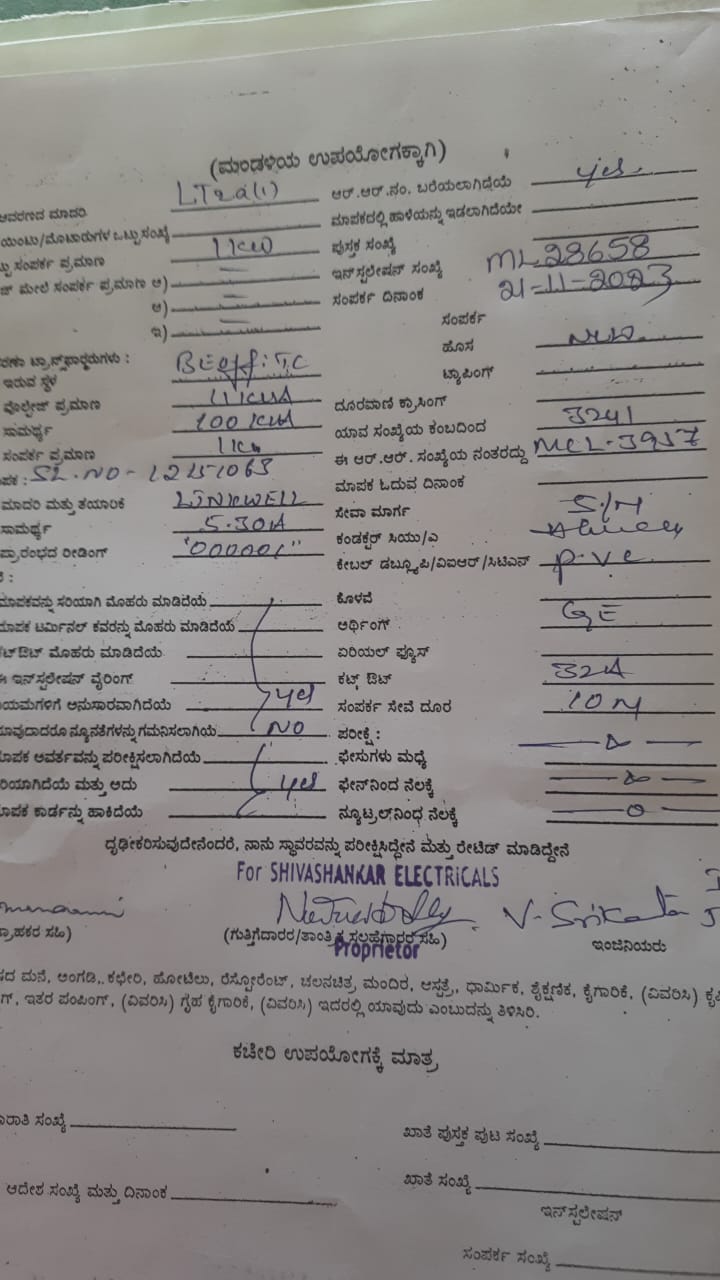 (ಮಂಡಳಿಯ ಉಪಯೋಗಕ್ಕಾಗಿ)
ಆವರಣದ ಮಾದರಿ LT2a(1) ಆರ್.ಆರ್.ನಂ. ಬರೆಯಲಾಗಿದೆಯೆ yes.
ಯಂಟು/ಮೊಟಾರುಗಳ ಒಟ್ಟು ಸಂಖ್ಯೆ ಮಾಪಕದಲ್ಲಿ ಹಾಳೆಯನ್ನು ಇಡಲಾಗಿದೆಯೇ
ಟ್ಟು ಸಂಪರ್ಕ ಪ್ರಮಾಣ 1 KW ಪುಸ್ತಕ ಸಂಖ್ಯೆ
ಮೇಲೆ ಸಂಪರ್ಕ ಪ್ರಮಾಣ ಅ) ಇನ್‌ಸ್ಟಲೇಷನ್ ಸಂಖ್ಯೆ ML28658
ಆ) ಸಂಪರ್ಕ ದಿನಾಂಕ 21-11-2023
ಇ) ಸಂಪರ್ಕ
ಟ್ರಾನ್ಸ್‌ಫಾರ್ಮರುಗಳು : ಹೊಸ
ಇರುವ ಸ್ಥಳ ಟ್ಯಾಪಿಂಗ್
ವೊಲ್ಟೇಜ್ ಪ್ರಮಾಣ 11 KVA ದೂರವಾಣಿ ಕ್ರಾಸಿಂಗ್
ಸಾಮರ್ಥ್ಯ 100 KVA ಯಾವ ಸಂಖ್ಯೆಯ ಕಂಬದಿಂದ 3241
ಸಂಪರ್ಕ ಪ್ರಮಾಣ 1 KW ಈ ಆರ್.ಆರ್. ಸಂಖ್ಯೆಯ ನಂತರದ್ದು MCL-3957
ಪಕ : SL.NO- ಮಾಪಕ ಓದುವ ದಿನಾಂಕ
ಮಾದರಿ ಮತ್ತು ತಯಾರಿಕೆ LINKWELL ಸೇವಾ ಮಾರ್ಗ S/M
ಸಾಮರ್ಥ್ಯ 5-30A ಕಂಡಕ್ಟರ್ ಸಿಯು/ಎ
ಪ್ರಾರಂಭದ ರೀಡಿಂಗ್ "000001" ಕೇಬಲ್ ಡಬ್ಲ್ಯೂಪಿ/ವಿಐಆರ್/ಸಿಟಿಎನ್ P.V.C
ಮಾಪಕವನ್ನು ಸರಿಯಾಗಿ ಮೊಹರು ಮಾಡಿದೆಯೆ ಕೊಳವೆ
ಮಾಪಕ ಟರ್ಮಿನಲ್ ಕವರನ್ನು ಮೊಹರು ಮಾಡಿದೆಯೆ ಅರ್ಥಿಂಗ್ GE
ಕಟ್‌ಔಟ್ ಮೊಹರು ಮಾಡಿದೆಯೆ ಏರಿಯಲ್ ಫ್ಯೂಸ್
ಈ ಇನ್‌ಸ್ಟಲೇಷನ್ ವೈರಿಂಗ್ ಕಟ್ಔಟ್ 32A
ಯಮಗಳಿಗೆ ಅನುಸಾರವಾಗಿದೆಯೆ yes ಸಂಪರ್ಕ ಸೇವೆ ದೂರ 10 M
ಯಾವುದಾದರೂ ನ್ಯೂನತೆಗಳನ್ನು ಗಮನಿಸಲಾಗಿಯೆ NO ಪರೀಕ್ಷೆ :
ಮಾಪಕ ಅವರ್ತವನ್ನು ಪರೀಕ್ಷಿಸಲಾಗಿದೆಯೆ ಫೇಸುಗಳು ಮಧ್ಯೆ
ರಿಯಾಗಿದೆಯೆ ಮತ್ತು ಅದು yes ಫೇಸ್‌ನಿಂದ ನೆಲಕ್ಕೆ
ಮಾಪಕ ಕಾರ್ಡನ್ನು ಹಾಕಿದೆಯೆ ನ್ಯೂಟ್ರಲ್‌ನಿಂಧ ನೆಲಕ್ಕೆ
ದೃಢೀಕರಿಸುವುದೇನೆಂದರೆ, ನಾನು ಸ್ಥಾವರವನ್ನು ಪರೀಕ್ಷಿಸಿದ್ದೇನೆ ಮತ್ತು ರೇಟಿಡ್ ಮಾಡಿದ್ದೇನೆ
For SHIVASHANKAR ELECTRICALS
V. Srikanta
ಗ್ರಾಹಕರ ಸಹಿ) (ಗುತ್ತಿಗೆದಾರರ/ತಾಂತ್ರಿಕ ಸಲಹೆಗಾರರ ಸಹಿ) ಇಂಜಿನಿಯರು
Proprietor
ಮನೆ, ಅಂಗಡಿ, ಕಛೇರಿ, ಹೋಟೆಲು, ರೆಸ್ಟೋರೆಂಟ್, ಚಲನಚಿತ್ರ ಮಂದಿರ, ಆಸ್ಪತ್ರೆ, ಧಾರ್ಮಿಕ, ಶೈಕ್ಷಣಿಕ, ಕೈಗಾರಿಕೆ, (ವಿವರಿಸಿ)
ಇತರ ಪಂಪಿಂಗ್, (ವಿವರಿಸಿ) ಗೃಹ ಕೈಗಾರಿಕೆ, (ವಿವರಿಸಿ) ಇದರಲ್ಲಿ ಯಾವುದು ಎಂಬುದನ್ನು ತಿಳಿಸಿರಿ.
ಕಚೇರಿ ಉಪಯೋಗಕ್ಕೆ ಮಾತ್ರ
ಸಂಖ್ಯೆ ಖಾತೆ ಪುಸ್ತಕ ಪುಟ ಸಂಖ್ಯೆ
ಆದೇಶ ಸಂಖ್ಯೆ ಮತ್ತು ದಿನಾಂಕ ಖಾತೆ ಸಂಖ್ಯೆ
ಇನ್‌ಸ್ಟಲೇಷನ್
ಸಂಪರ್ಕ ಸಂಖ್ಯೆ